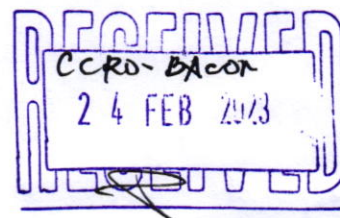 RECEIVED
CCRO-BACON
24 FEB 2023